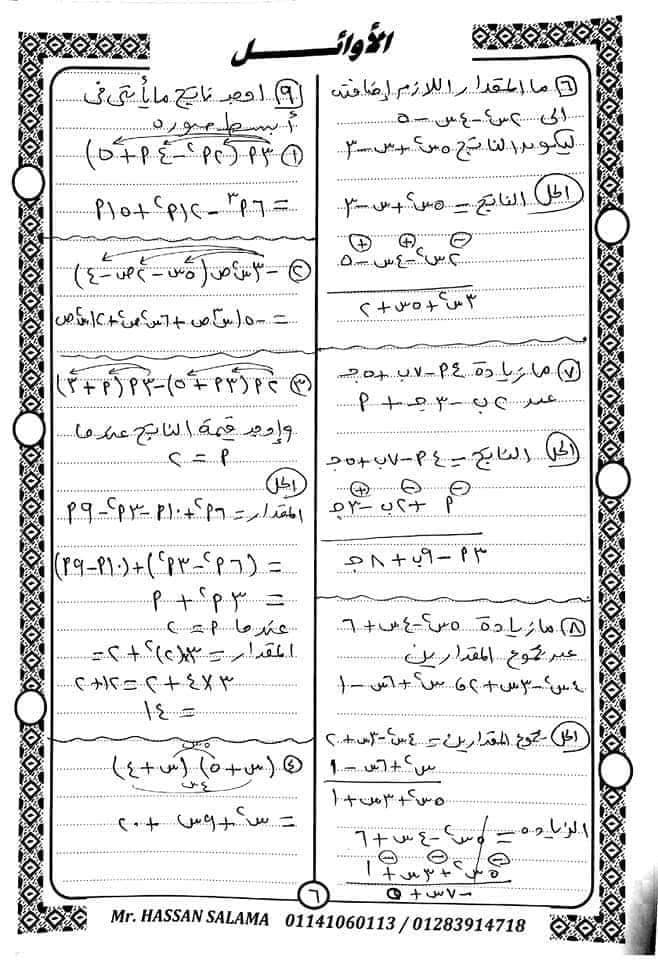 الأوائل
٦ ما المقدار اللازم إضافته
الى ٢س٢ - ٤س - ٥
ليكون الناتج ٥س٢ + س - ٣
الحل الناتج = ٥س٢ + س - ٣
٢س٢ - ٤س - ٥
⊖ ⊕ ⊕
٣س٢ + ٥س + ٢
٧ ما زيادة ٤أ - ٧ب + ٥جـ
عن ٢ب - ٣جـ + أ
الحل الناتج = ٤أ - ٧ب + ٥جـ
أ + ٢ب - ٣جـ
⊖ ⊖ ⊕
٣أ - ٩ب + ٨جـ
٨ ما زيادة ٥س٢ - ٤س + ٦
عن مجموع المقدارين
٤س٢ - ٣س + ٢ و س٢ + ٦س - ١
الحل مجموع المقدارين = ٤س٢ - ٣س + ٢
س٢ + ٦س - ١
٥س٢ + ٣س + ١
الزيادة = ٥س٢ - ٤س + ٦
٥س٢ + ٣س + ١
⊖ ⊖ ⊖
- ٧س + ٥
٩ اوجد ناتج ما يأتى فى
أبسط صوره
١ ٣أ (٢أ٢ - ٤أ + ٥)
= ٦أ٣ - ١٢أ٢ + ١٥أ
٢ - ٣س٢ص (٥س - ٢ص - ٤)
= - ١٥س٣ص + ٦س٢ص٢ + ١٢س٢ص
٣ ٢أ (٣أ + ٥) - ٣أ (أ + ٣)
وإوجد قيمة الناتج عندما
أ = ٢
الحل
المقدار = ٦أ٢ + ١٠أ - ٣أ٢ - ٩أ
= (٦أ٢ - ٣أ٢) + (١٠أ - ٩أ)
= ٣أ٢ + أ
عندما أ = ٢
المقدار = ٣×(٢)٢ + ٢ =
٣×٤ + ٢ = ١٢ + ٢
= ١٤
٥س
٤ (س + ٥) (س + ٤)
٤س
= س٢ + ٩س + ٢٠
٦
Mr. HASSAN SALAMA 01141060113 / 01283914718